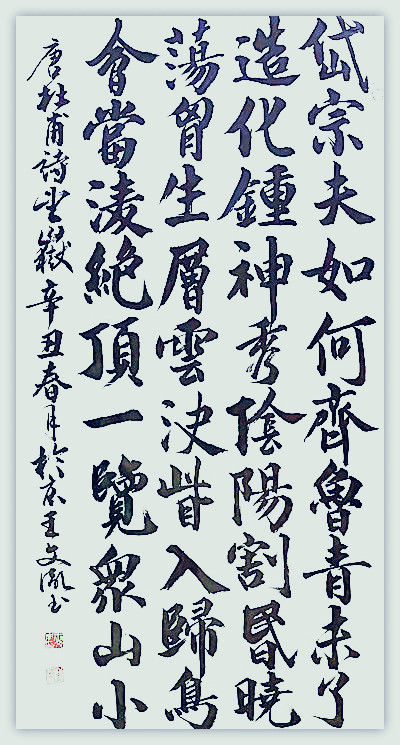 岱宗夫如何齊魯青未了
造化鍾神秀陰陽割昏曉
蕩胷生層雲決眥入歸鳥
會當淩絕頂一覽眾山小
唐杜甫詩望嶽辛丑春月於京王文书